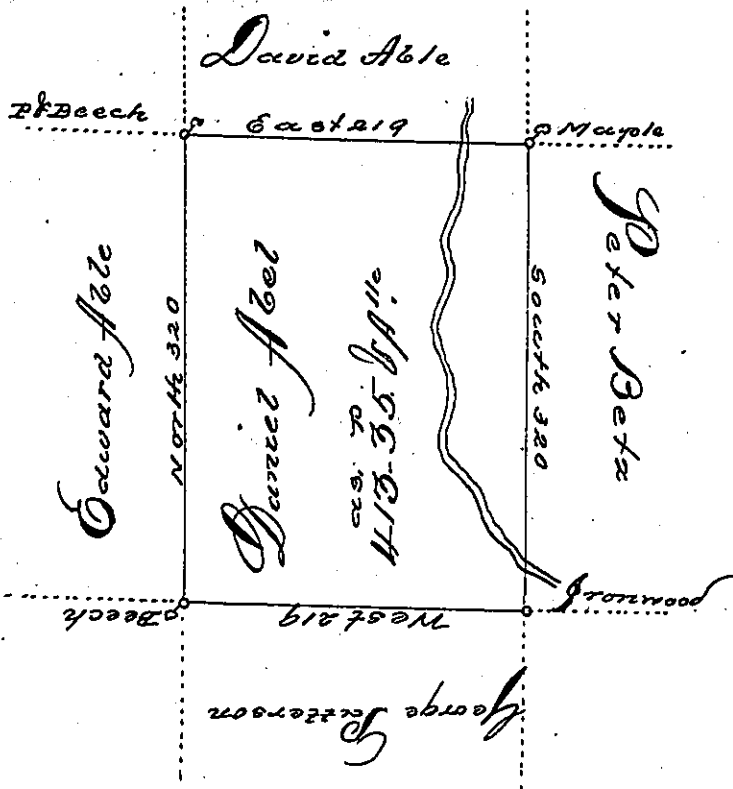 David Able
P & Beech
East 219
Maple
Edward Able
North 320
Daniel Abel
413-35 & Alle
a is a
South 320
Peter Betz
Beech
West 219
Ironwood
George Patterson